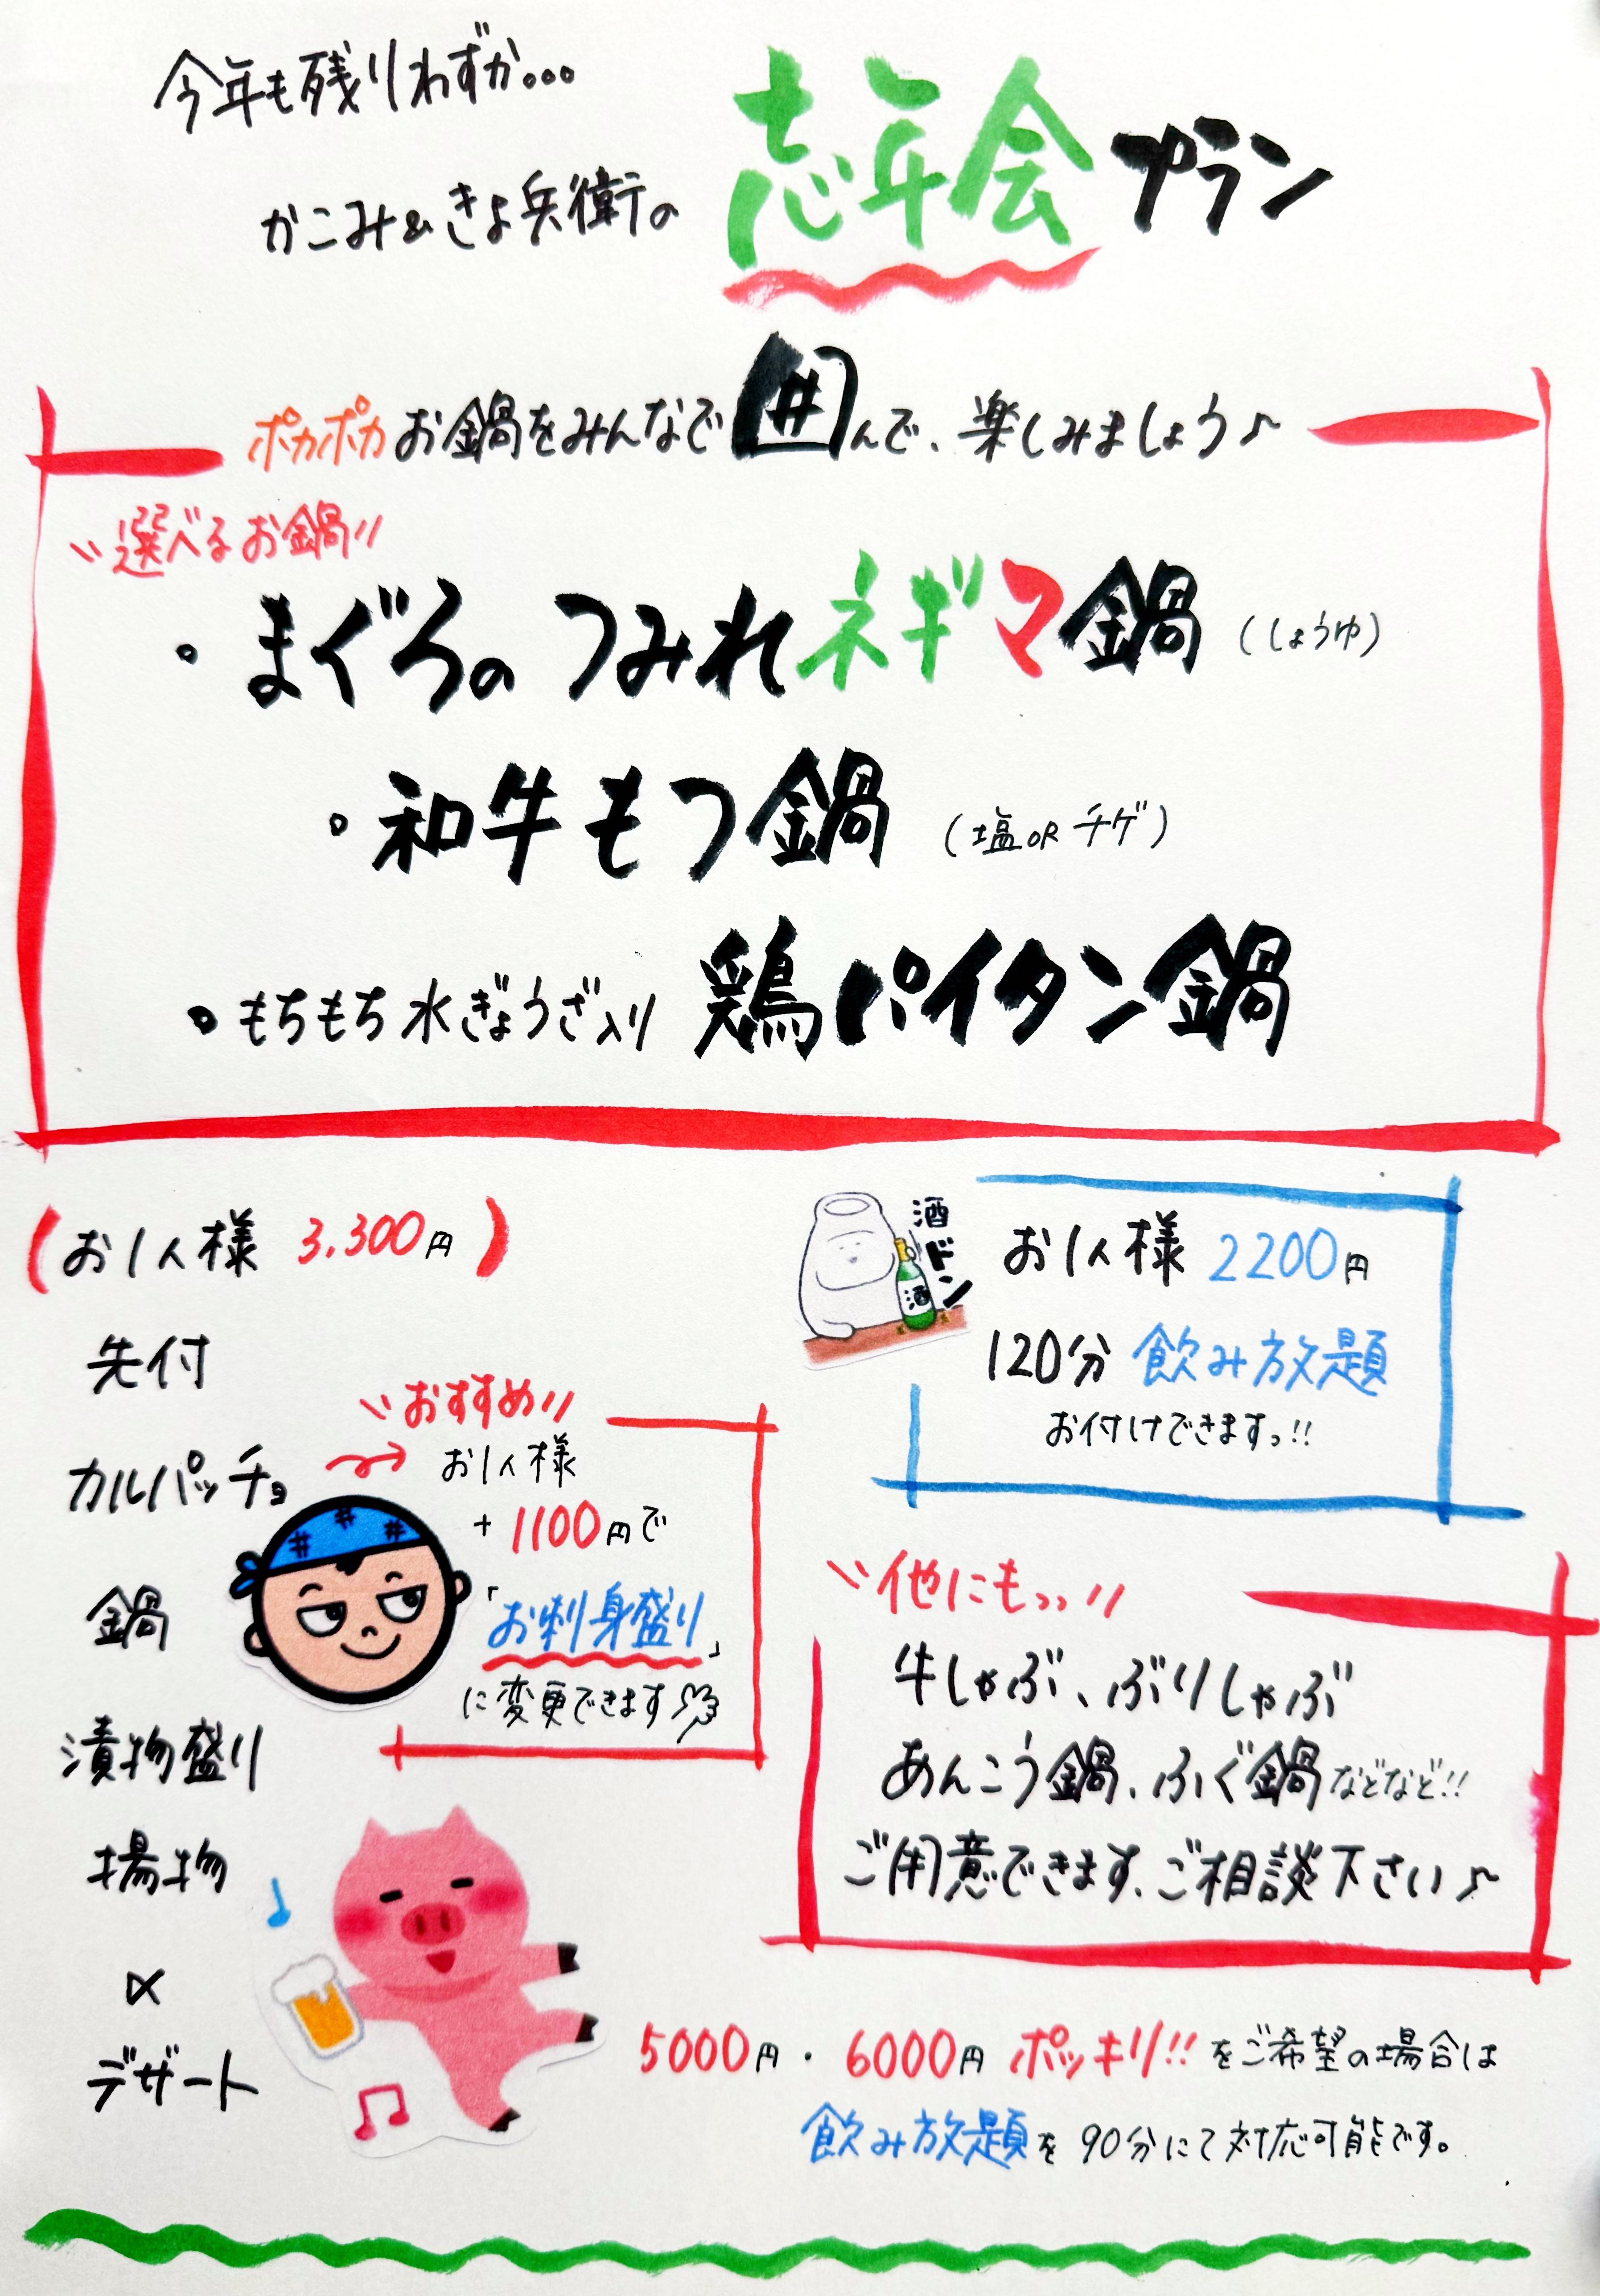 今年も残りわずか...
かこみ&きよ兵衛の
忘年会プラン
ポカポカお鍋をみんなで囲んで、楽しみましょう♪
選べるお鍋
・まぐろのつみれネギマ鍋 (しょうゆ)
・和牛もつ鍋 (塩ORチゲ)
・もちもち水ぎょうざ入り 鶏パイタン鍋
(お1人様 3,300円)
先付
カルパッチョ
鍋
漬物盛り
揚物
α
デザート
おすすめ
お1人様
+1100円で
「お刺身盛り」
に変更できます
酒ドン
酒
お1人様 2200円
120分 飲み放題
お付けできますっ!!
他にもっっ
牛しゃぶ、ぶりしゃぶ
あんこう鍋、ふぐ鍋などなど!!
ご用意できます、ご相談下さい♪
5000円・6000円 ポッキリ!!をご希望の場合は
飲み放題を90分にて対応可能です。